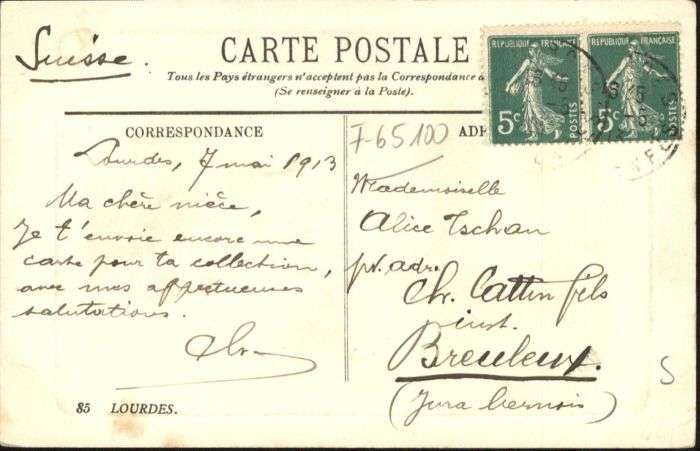 Suisse.
CARTE POSTALE
Tous les Pays étrangers n'acceptent pas la Correspondance a
(Se renseigner à la Poste).
CORRESPONDANCE
Lourdes, 7 mai 1913
Ma chère nièce,
Je t'envoie encore une
carte pour ta collection,
avec mes affectueuses
salutations.
Ch.
85 LOURDES.
F-65100
ADR
Mademoiselle
Alice Tschan
pr. adr.
Ch. Cattin fils
inst.
Breuleux.
(Jura bernois)
REPUBLIQUE FRANÇAISE
5c
POSTES
REPUBLIQUE FRANÇAISE
5c
POSTES
S